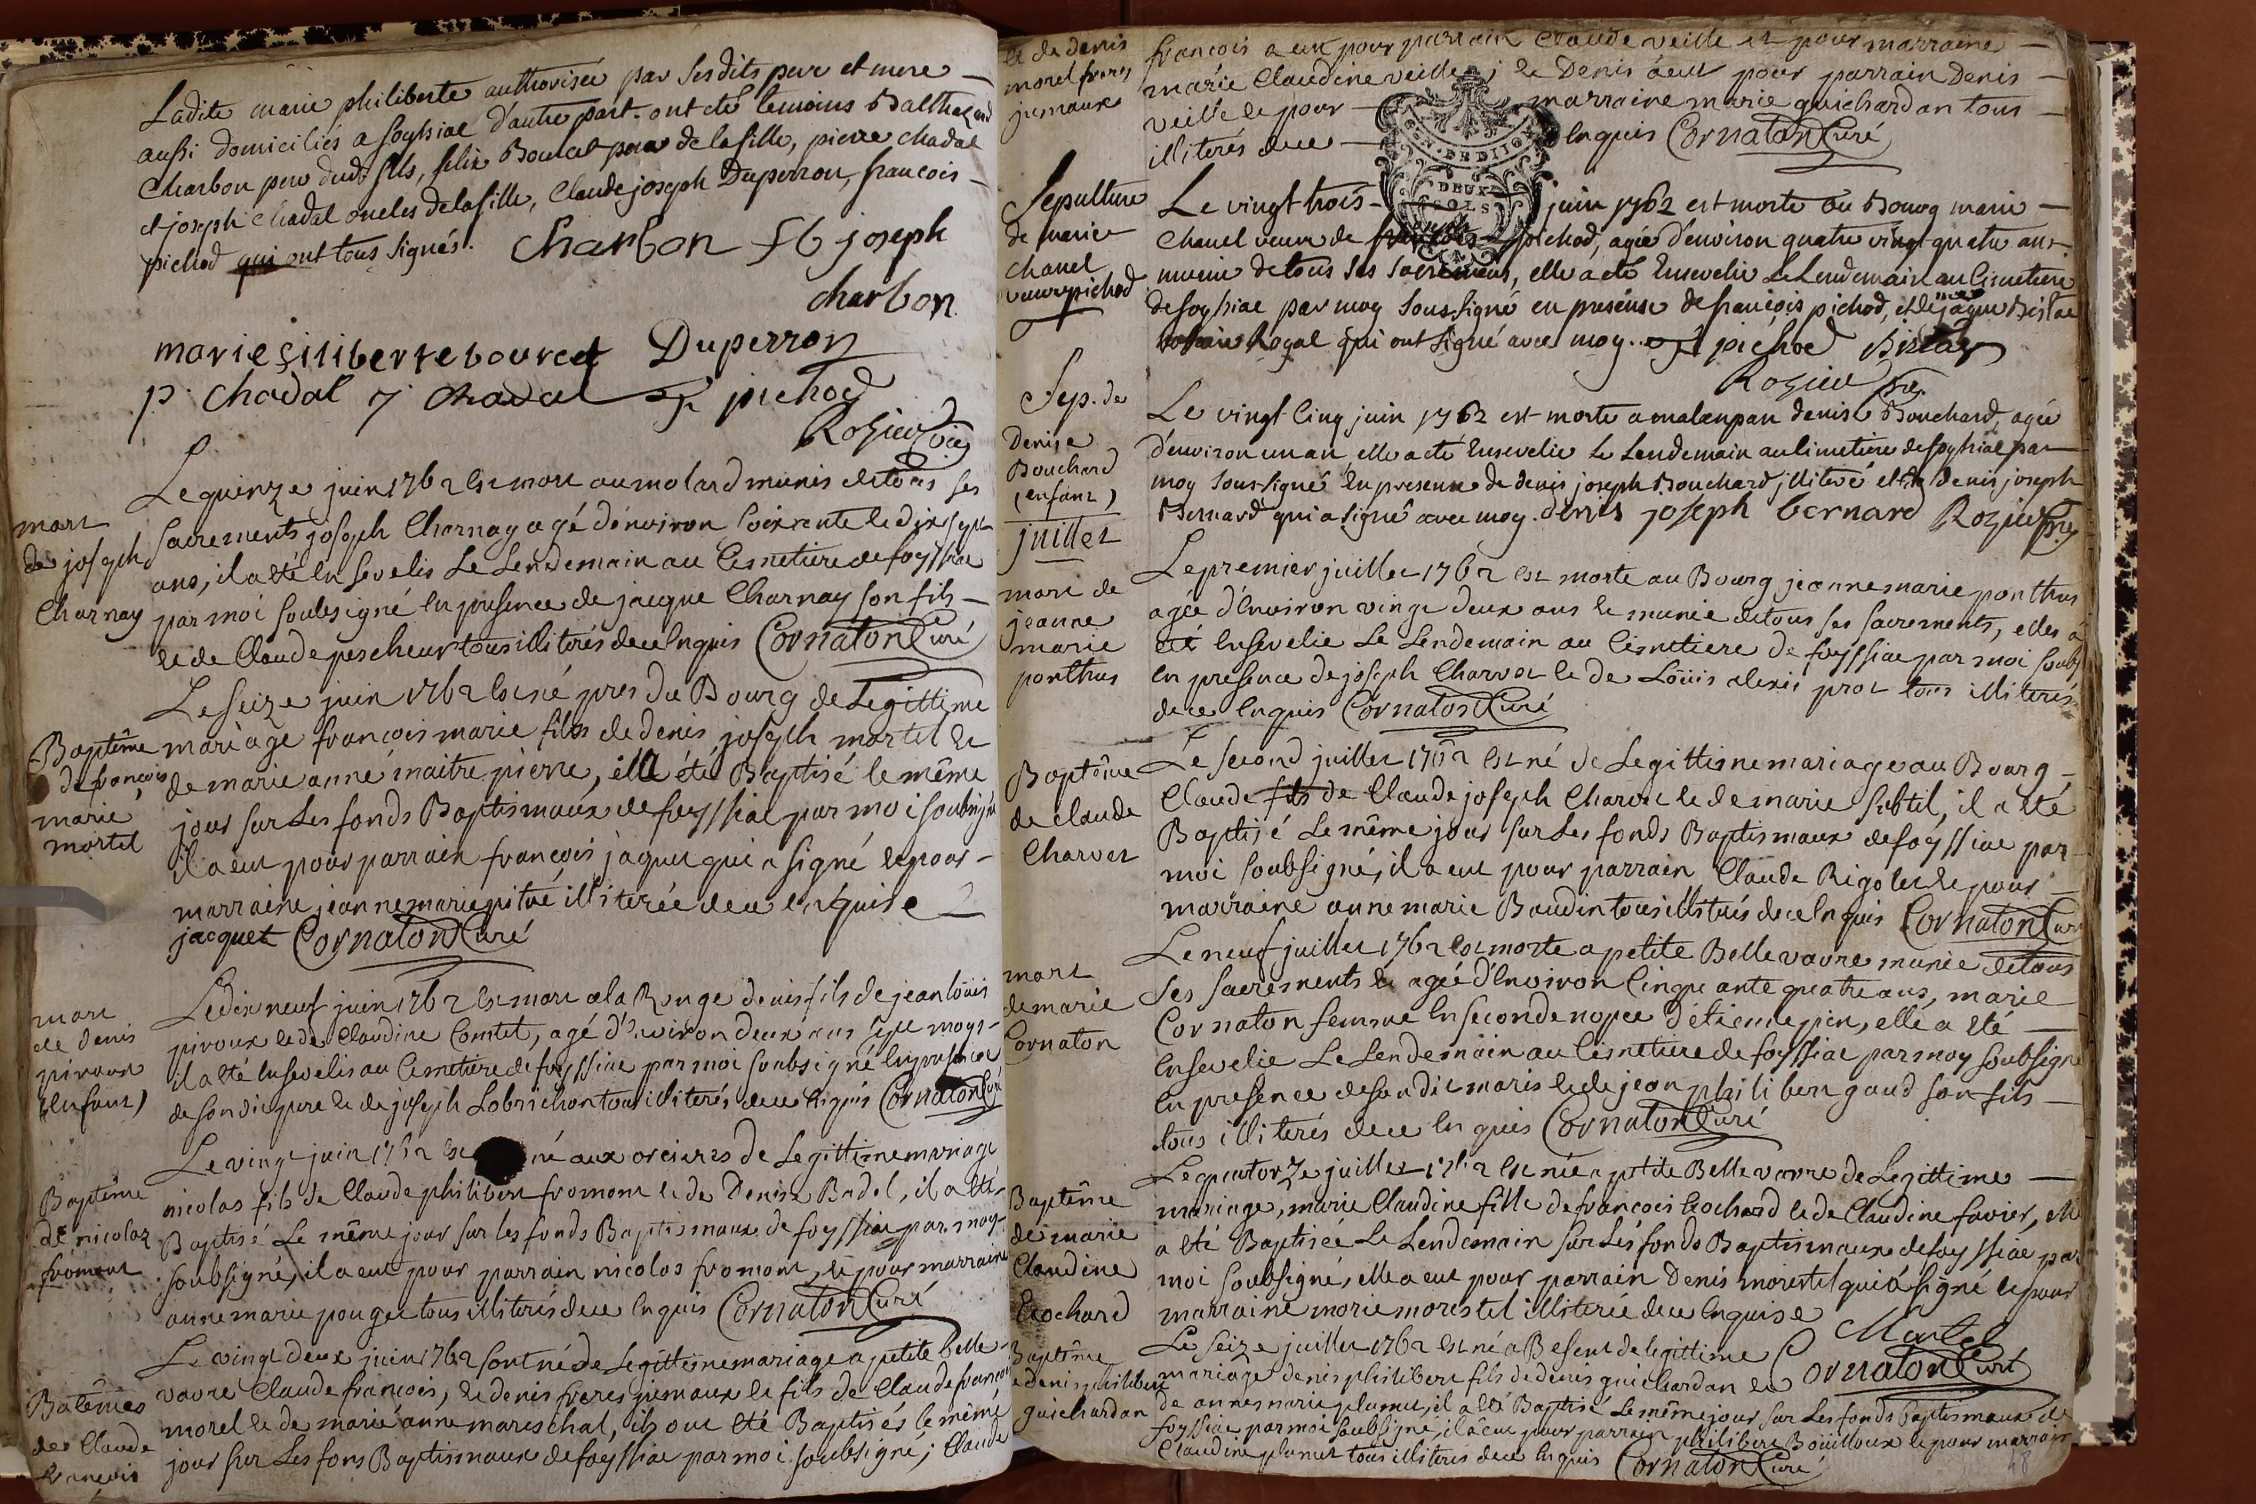 Ladite marie philiberte authorisée par sesdits pere et mere
aussi domiciliés a foyssiac d'autre part. ont été temoins Balthazard
Charbon pere dudit fils, felix Bourcet pere de la fille, pierre chadal
et joseph chadal oncles de la fille, Claude joseph Duperron, francois
pichod qui ont tous signés. Charbon joseph
charbon
marie filiberte bourcet Duperron
p. chadal j chadal f pichod
Rozier vic
Le quinze juin 1762 est mort au molard munis de tous ses
mort
de joseph
Charnay
sacrements joseph Charnay agé d'environ soixante et dix sept
ans, il a été ensevelis Le Lendemain au Cimetiere de foyssiac
par moi soubsigné en presence de jacque Charnay son fils
et de Claude pescheur tous illiterés de ce enquis Cornaton Curé
Le seize juin 1762 est né pres du Bourg de Legittime
Baptême
de francois
marie
mortel
mariage francois marie fils de denis joseph mortel et
de marie anne maitre pierre, il a été Baptisé le même
jour sur Les fonds Baptismaux de foyssiac par moi soubsigné
il a eut pour parrain francois jaquet qui a signé et pour
marraine jeanne marie pitué illiterée de ce enquise
jacquet Cornaton Curé
Le dix neuf juin 1762 est mort a la Rouge denis fils de jean loüis
mort
de denis
piroux
(enfant)
piroux et de Claudine Comtet, agé d'environ deux ans sept moys
il a été ensevelis au Cimetiere de foyssiac par moi soubsigné en presence
de son dit pere et de joseph Lobrichon tous illiterés de ce enquis Cornaton Curé
Le vingt juin 1762 est né aux orcieres de Legittime mariage
Baptême
de nicolas
fromont
nicolas fils de Claude philibert fromont et de Denise Badel, il a été
Baptisé Le même jour sur les fonds Baptismaux de foyssiac par moy
soubsigné, il a eut pour parrain nicolas fromont, et pour marraine
anne marie pouget tous illiterés de ce enquis Cornaton Curé
Le vingt deux juin 1762 sont né de Legittime mariage a petite belle
Batêmes
de Claude
francois
vavre Claude francois, et denis freres jumaux et fils de Claude francois
morel et de marie anne mareschal, ils ont été Baptisés le même
jour sur Les fons Baptismaux de foyssiac par moi soubsigné; Claude
et de denis
morel freres
jumaux
francois a eut pour parrain Claude veille et pour marraine
marie Claudine veille; et Denis a eut pour parrain Denis
veille et pour marraine marie guichardan tous
illiterés de ce enquis Cornaton Curé
GEN. DE DIJON
DEUX
SOLS
Sepulture
de marie
chanel
veuve pichod
Le vingt trois juin 1762 est morte au Bourg marie
Chanel veuve de francois pichod, agée d'environ quatre vingt quatre ans
munie de tous ses sacremens, elle a été Ensevelie Le Lendemain au Cimetiere
de foyssiac par moy sous signé en presense de francois pichod, et de jaque
Royal qui ont signé avec moy. f pichod
Rozier
Sep. de
Denise
Bouchard
(enfant)
Le vingt Cinq juin 1762 est morte a malanpan denise Bouchard, agée
d'environ un an, elle a été Ensevelie Le Lendemain au Cimetiere de foyssiac par
moy sous signé En presence de denis joseph Bouchard illiteré et de denis joseph
Bernard qui a signé avec moy. denis joseph bernard Rozier
juillet
Le premier juillet 1762 est morte au Bourg jeanne marie ponthus
mort de
jeanne
marie
ponthus
agée d'Environ vingt deux ans et munie de tous ses sacrements, elle a
été Ensevelie Le Lendemain au Cimetiere de foyssiac par moi soub
En presence de joseph Charvet et de Loüis alexis prot tous illiterés
de ce Enquis Cornaton Curé
Le second juillet 1762 est né de Legittime mariage au Bourg
Baptême
de Claude
Charvet
Claude fils de Claude joseph Charvet et de marie subtil, il a été
Baptisé Le même jour sur Les fonds Baptismaux de foyssiac par
moi soubsigné, il a eut pour parrain Claude Rigolet et pour
marraine anne marie Baudin tous illiterés de ce enquis Cornaton Curé
Le neuf juillet 1762 est morte a petite Belle vavre munie de tous
mort
de marie
Cornaton
ses sacrements et agée d'Environ Cinquante quatre ans, marie
Cornaton femme En seconde nopce d'étienne pin, elle a été
Ensevelie Le Lendemain au Cimetiere de foyssiac par moy soubsigné
En presence de son dit maris et de jean philibert gaud son fils
tous illiterés de ce En quis Cornaton Curé
Le quatorze juillet 1762 est née a petite Belle vavre de Legittime
Baptême
de marie
Claudine
Cochard
mariage, marie Claudine fille de francois Cochard et de Claudine favier, elle
a été Baptisée Le Lendemain sur Les fonds Baptismaux de foyssiac par
moi soubsigné, elle a eut pour parrain Denis morestel qui a signé et pour
marraine marie morestel illiterée de ce Enquise
Cornaton Curé
Le seize juillet 1762 est né a Besent de legittime
Baptême
de denis philibert
guichardan
mariage denis philibert fils de denis guichardan et
de anne marie plumet, il a été Baptisé Le même jour sur Les fonds Baptismaux de
foyssiac par moi soubsigné, il a eut pour parrain philibert Boüilloux et pour marraine
Claudine plumet tous illiterés de ce Enquis Cornaton Curé
48